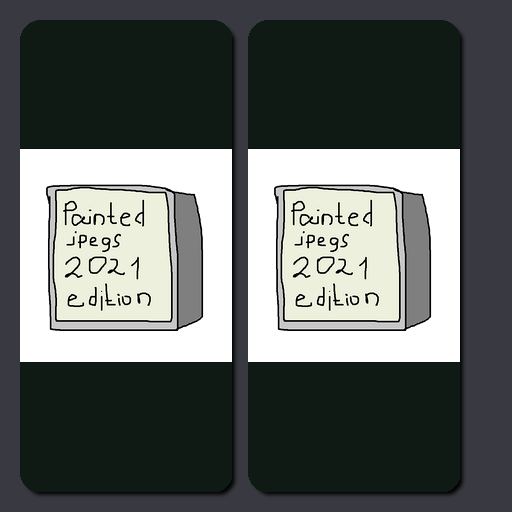 Painted
jpegs
2021
edition
Painted
jpegs
2021
edition